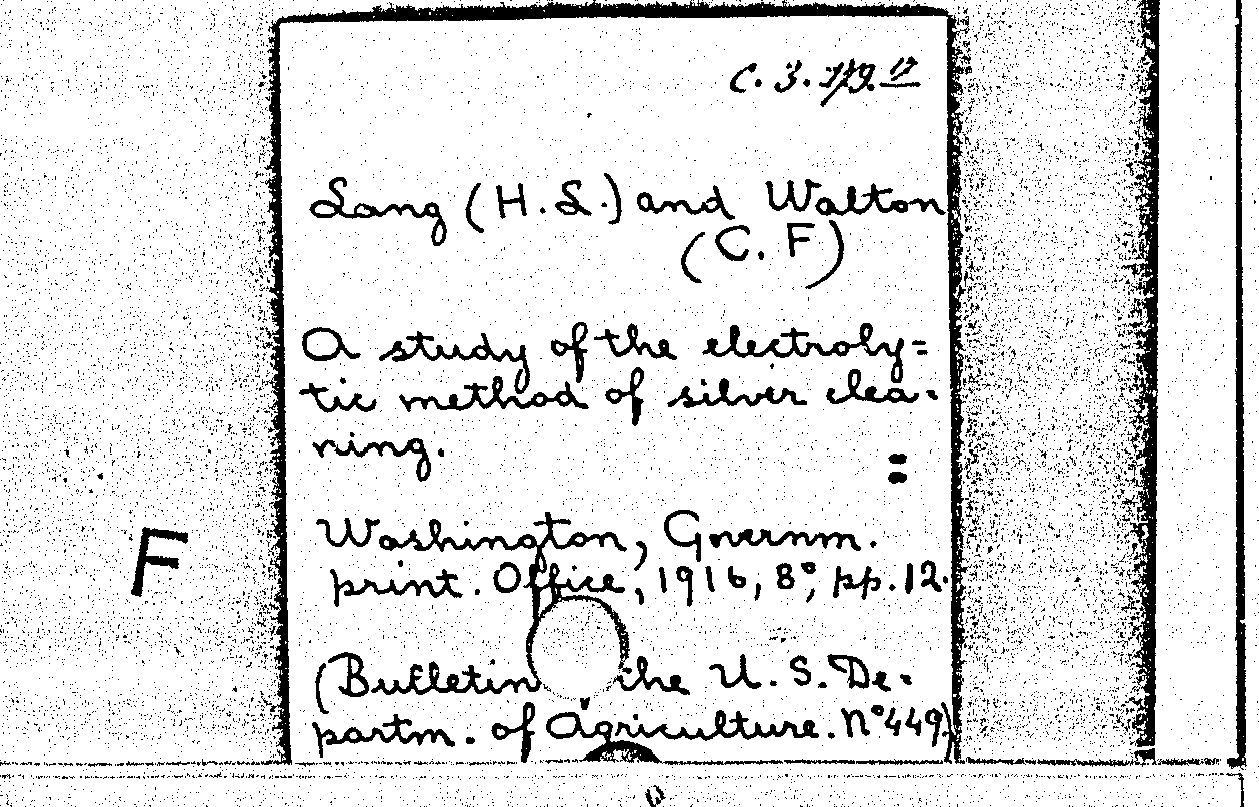 Lang (H. L.) and Walton
(C. F)
A study of the electroly=
tic method of silver clea-
ning.
=
Washington, Governm.
F
print. Office, 1916, 8°, pp. 12.
(Bulletin the U. S. De-
partm. of Agriculture. N°449)